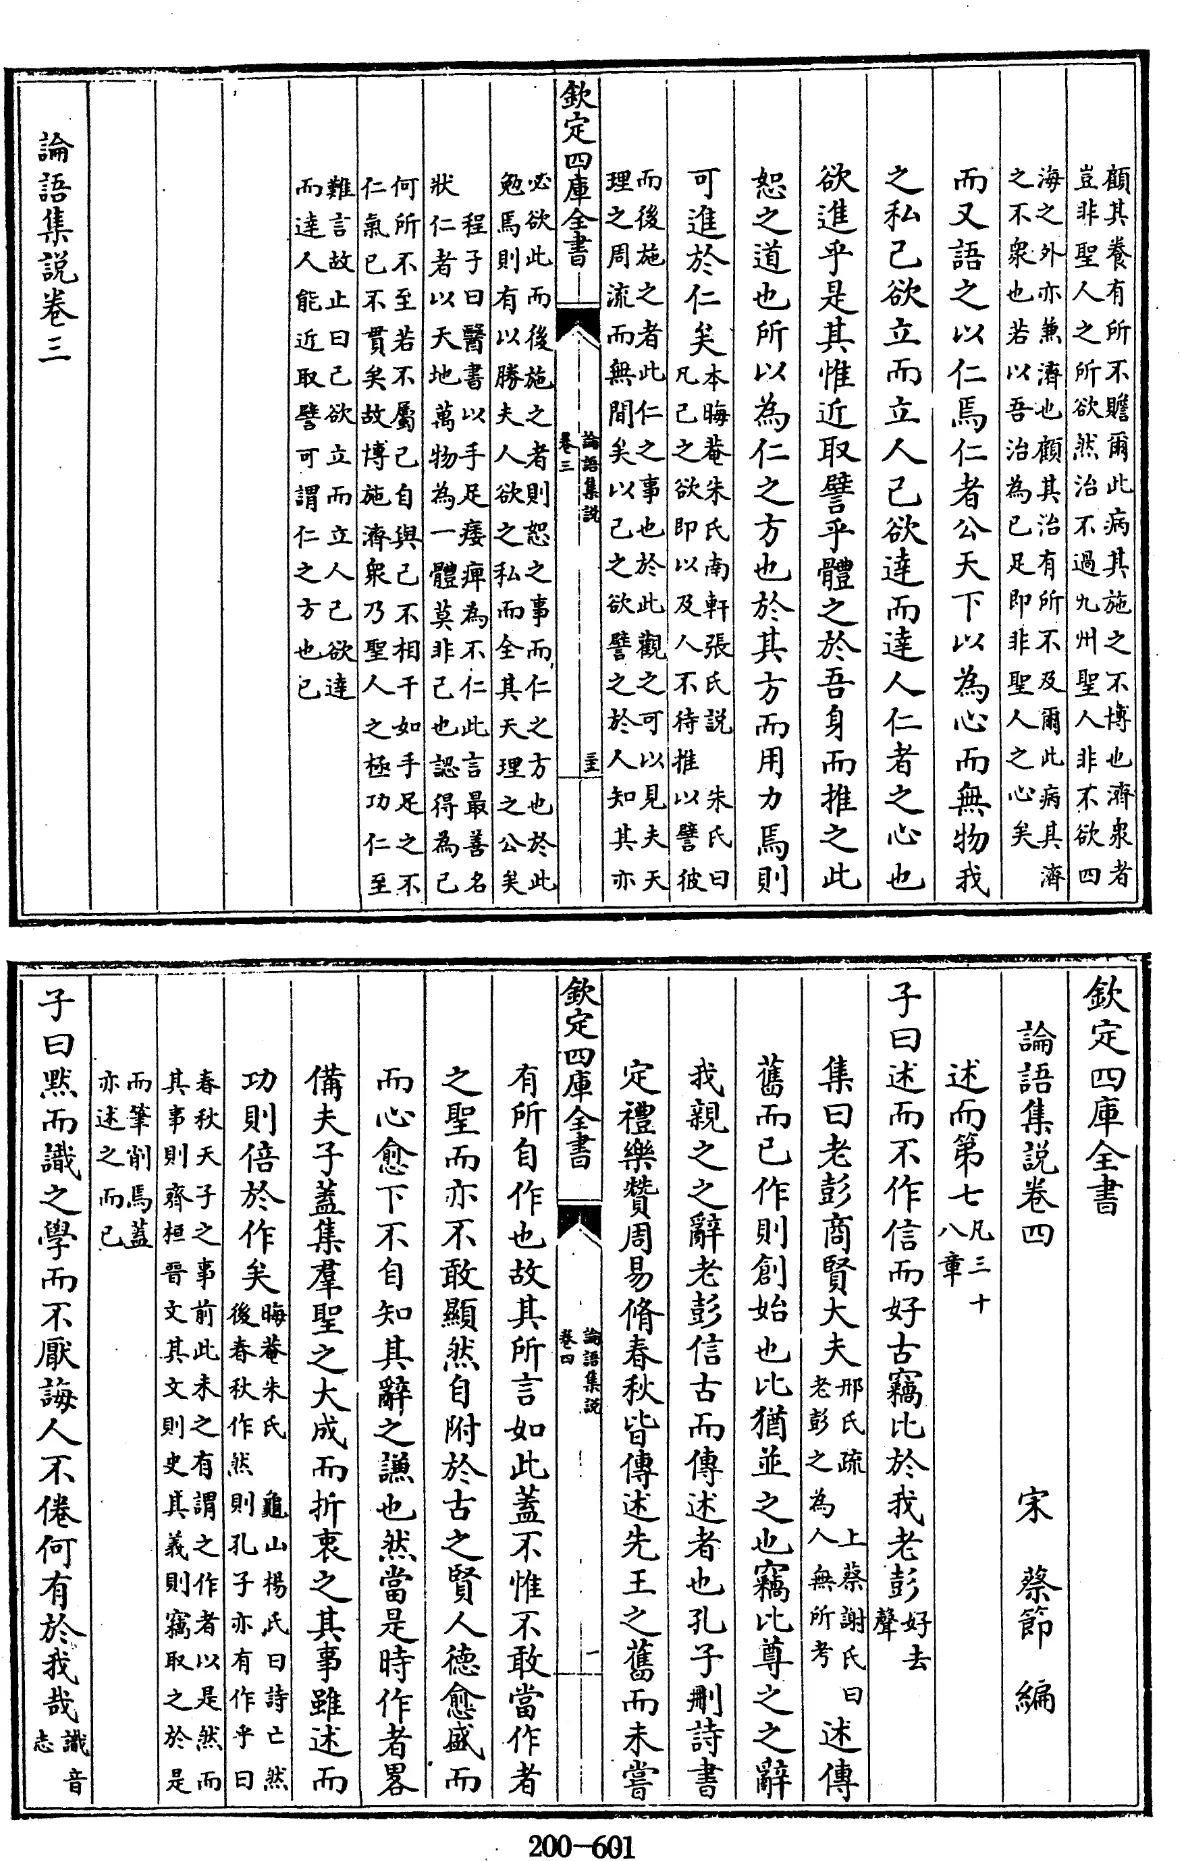 顧其養有所不贍爾此病其施之不博也濟衆者
豈非聖人之所欲然治不過九州聖人非不欲四
海之外亦兼濟也顧其治有所不及爾此病其濟
之不衆也若以吾治為已足即非聖人之心矣
而又語之以仁焉仁者公天下以為心而無物我
之私己欲立而立人己欲達而達人仁者之心也
欲進乎是其惟近取譬乎體之於吾身而推之此
恕之道也所以為仁之方也於其方而用力焉則
可進於仁矣
本晦菴朱氏南軒張氏説 朱氏曰
凡己之欲即以及人不待推以譬彼
而後施之者此仁之事也於此觀之可以見夫天
理之周流而無間矣以己之欲譬之於人知其亦
欽定四庫全書
論語集説
卷三
必欲此而後施之者則恕之事而仁之方也於此
勉焉則有以勝夫人欲之私而全其天理之公矣
程子曰醫書以手足痿痺為不仁此言最善名
狀仁者以天地萬物為一體莫非己也認得為己
何所不至若不屬己自與己不相干如手足之不
仁氣已不貫矣故博施濟衆乃聖人之極功仁至
難言故止曰己欲立而立人己欲達
而達人能近取譬可謂仁之方也已
論語集説卷三
欽定四庫全書
論語集説卷四
宋 蔡節 編
述而第七
凡三十
八章
子曰述而不作信而好古竊比於我老彭
好去
聲
集曰老彭商賢大夫
邢氏疏 上蔡謝氏曰
老彭之為人無所考
述傳
舊而已作則創始也比猶並之也竊比尊之之辭
我親之之辭老彭信古而傳述者也孔子刪詩書
定禮樂贊周易脩春秋皆傳述先王之舊而未嘗
欽定四庫全書
論語集説
卷四
一
有所自作也故其所言如此蓋不惟不敢當作者
之聖而亦不敢顯然自附於古之賢人德愈盛而
而心愈下不自知其辭之謙也然當是時作者畧
備夫子蓋集羣聖之大成而折衷之其事雖述而
功則倍於作矣
晦菴朱氏 龜山楊氏曰詩亡然
後春秋作然則孔子亦有作乎曰
春秋天子之事前此未之有謂之作者以是然而
其事則齊桓晉文其文則史其義則竊取之於是
而筆削焉蓋
亦述之而已
子曰黙而識之學而不厭誨人不倦何有於我哉
識音
志
200-601